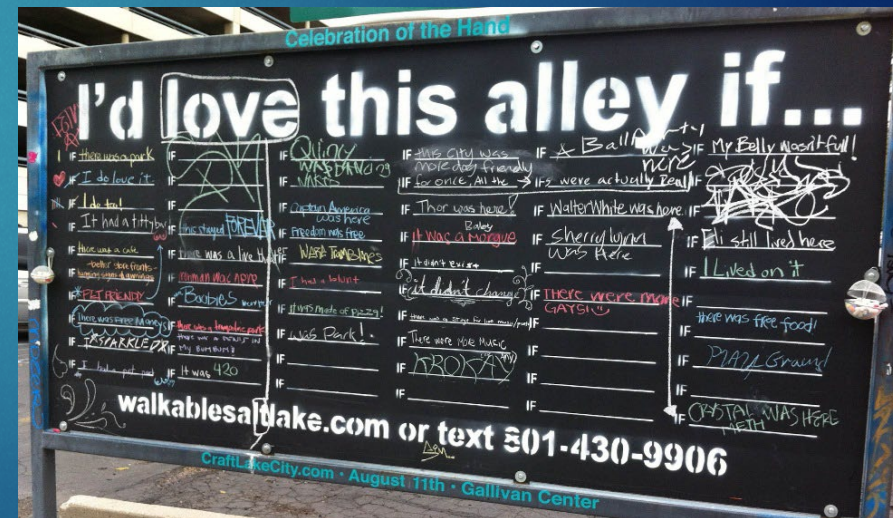 Celebration of the Hand
I'd love this alley if...
IF there was a park
IF I do love it.
IF I do too!
IF It had a titty bar
IF there was a cafe
better store fronts
IF
IF *PET FRIENDLY
IF there was free money
IF I *SPARKLED*
IF I had a pet
IF
IF
IF
IF this stayed FOREVER
IF there was a live theater
IF
IF Boobies
IF there was a trampoline park
IF there was a
MY BUMBUM!!
IF It was 420
IF Quincy
WAS
IF
IF Captain America
was here
IF Freedom was free
IF WARM
IF I had a blunt
IF it was made of pizza!
IF Was Park!
IF
IF
IF this city was
more dog friendly
IF for once, All the → IFs were actually Real
IF Thor was here!
IF it was a Morgue
IF it didn't exist
IF it didn't change
IF there was a stage for live music
IF There were More Music
IF KROKAY
IF
IF
IF Walter White was here
IF Sherry lynn
was Here
IF
IF THERE WERE MORE
GAYS!
IF
IF
IF
IF
IF My Belly wasn't full!
IF
IF Eli still lived here
IF I Lived on it
IF
IF there was free food!
IF Play Ground
IF
IF CRYSTAL WAS HERE
METH
walkablesaltlake.com or text 801-430-9906
CraftLakeCity.com • August 11th • Gallivan Center